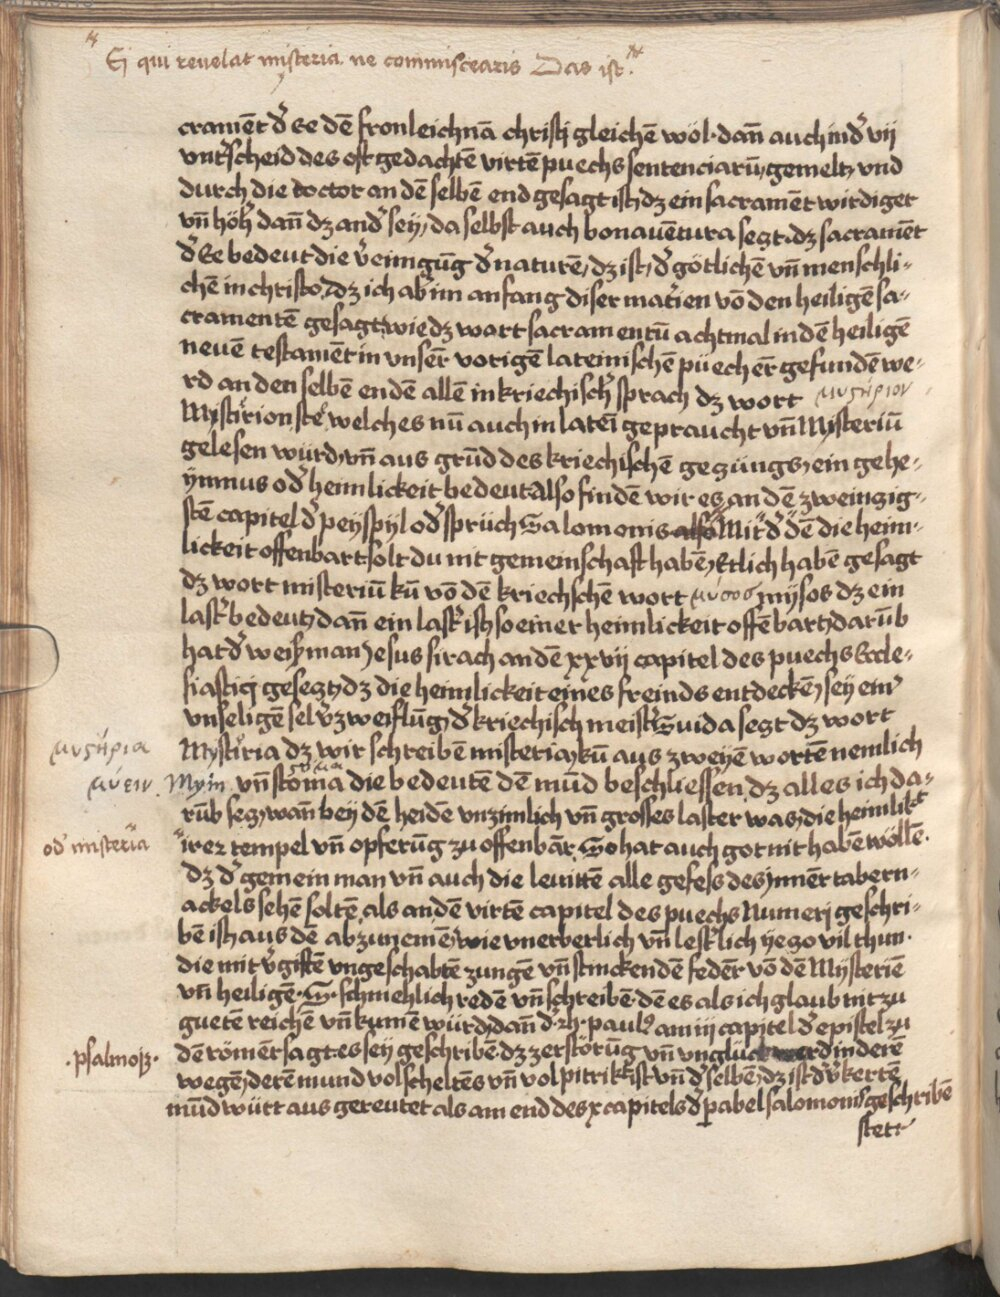 Ei qui reuelat misteria ne commiscearis Das ist
cramēt d̕ Ee dē fronleichnā christi gleichē wöl· dañ auch ind̕ vij
vnt̕scheid des oft gedachtē virtē puechs sentenciarū, gemelt, vnd
durch die doctor an dē selbē end gesagt ist, dz ein sacramēt wirdiger
vñ höh̕ dañ dz and̕ sey, da selbst auch bonauētura segt. dz sacramēt
d̕ Ee bedeut die v̕einigūg d̕ naturē, dz ist, d̕ götlichē vñ menschli-
chē in christo, dz ich ab̕ im anfang diser mat̕ien vō den heiligē sa-
cramentē gesagt, wie dz wort sacramentū achtmal in dē heiligē
neuē testamēt in vnser̄ vorigē lateinischē püecher̄ gefundē we-
rd an den selbē endē allē in kriechisch̕ sprach dz wort μυςήριον
Mystirion stē welches nū auch in lateī gepraucht vñ Mysteriū
gelesen würd, vñ aus grūd des kriechischē gezüngs, ein gehe-
ymnus od̕ heimlickeit bedeut, Also findē wir es, an dē zweinzig-
stē capitel d̕ peyspyl od̕ sprüch Salomonis also Mit d̕ dē die heim-
lickeit offenbart solt du nit gemeinschaft habē, Etlich habē gesagt
dz wort misteriū kū vō dē kriechschē wort μύσος mysos dz ein
last̕ bedeut, dañ ein last̕ ist, so einer heimlickeit offēbart, darūb
hat d̕ weisz man Jesus sirach an dē xxvij capitel des puechs Eccle-
siastici gesegt, dz die heimlickeit eines freinds entdeckē, sey ein̕
vnseligē sel v̕zweiflūg, d̕ kriechisch meist̕ Suida segt dz wort
μυςήρια
Mysteria dz wir schreibē misteria, kū aus zweyē wortē nemlich
μύειν Myin vñ stoma die bedeutē dē mūd beschliessen, dz alles ich da-
rūb seg, wañ bey dē heidē vnzimlich vñ grosses laster was, die heimlik̄t
od̕ misteria
irer tempel vñ opferūg zu offenbār, So hat auch got nit habē wöllē·
dz d̕ gemein man vñ auch die leuittē alle gefess des ynnēr tabern-
ackels sehē soltē, als an dē virtē capitel des puechs Numeri geschri-
bē ist, aus dē abzunemē, wie vnerberlich vñ lest̕lich yezo vil thun·
die mit v̕giftē vngeschabtē zungē vñ stinckendē feder̄ vō dē Mysteriē
vñ heiligē· S· schmehlich redē vñ schreibē· dē es als ich glaub nit zu
guetē reichē vñ kumē würd, dañ d̕· zh· paul⁹ am iij capitel d̕ epistel zu
.psalmo 13.
dē römer̄ sagt. es sey geschribē. dz zerstörūg vñ vnglück werd in derē
wegē, derē mund vol scheltēs vñ vol pitrik̄t ist vñ d̕ selbē, dz ist d̕ v̕kertē
mūd würt aus gereutet als am end des x capitels d̕ parabel salomonis geschribē
stet·